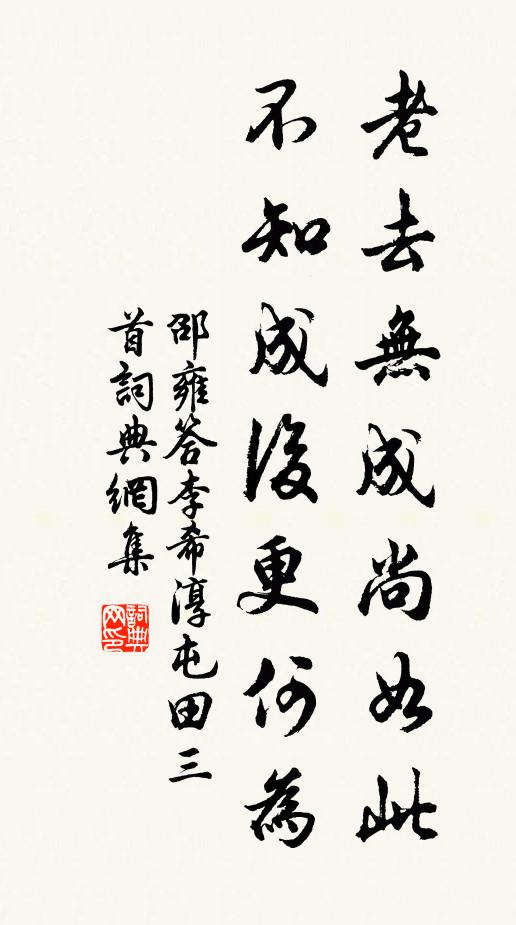 老去無成尚如此
不知成後更何為
邵雍答李希淳屯田三
首詞典網集
詞典网印